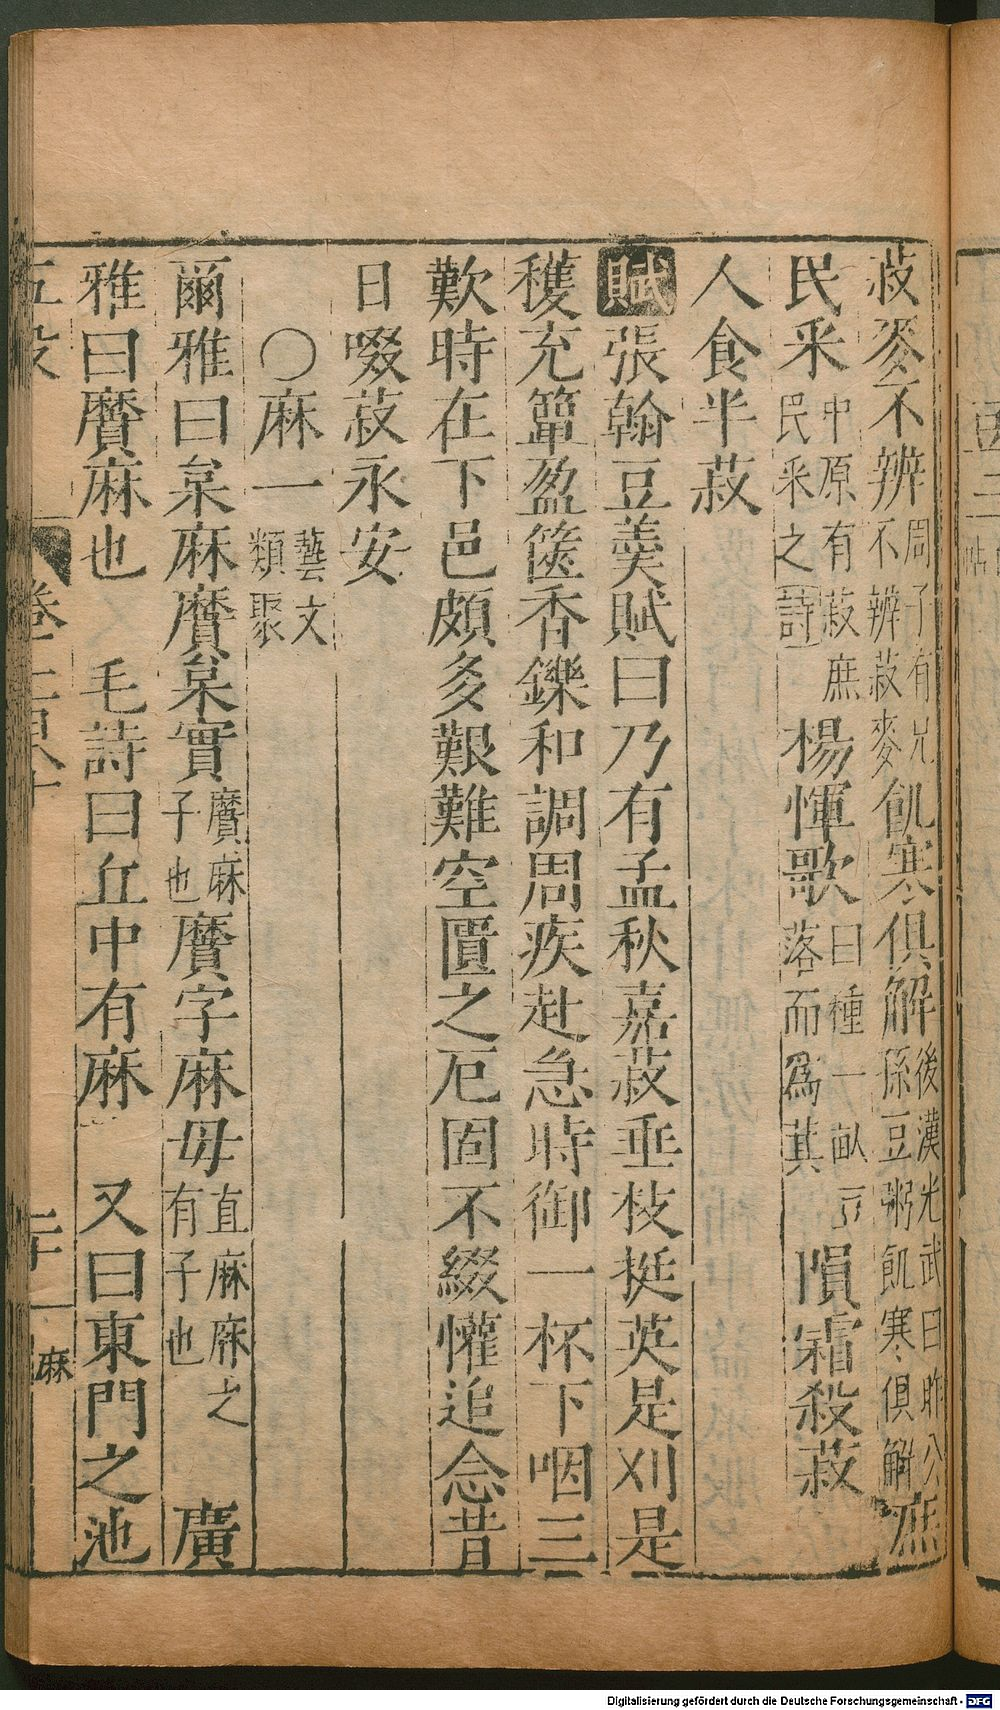 菽麥不辨周子有兄不辨菽麥飢寒俱解後漢光武曰昨公孫豆粥飢寒俱解庶
民采中原有菽庶民采之詩楊惲歌曰種一畝豆落而爲萁隕霜殺菽
人食半菽
賦張翰豆羹賦曰乃有孟秋嘉菽垂枝挺英是刈是
穫充簞盈篋香鑠和調周疾赴急時御一杯下咽三
歎時在下邑頗多艱難空匱之厄固不綴懽追念昔
日啜菽永安
〇麻一藝文類聚
爾雅曰枲麻黂枲實黂麻子也黂字麻母直麻麻之有子也廣
雅曰黂麻也 毛詩曰丘中有麻 又曰東門之池
五穀 卷二百八十 二十一 麻
Digitalisierung gefördert durch die Deutsche Forschungsgemeinschaft - DFG